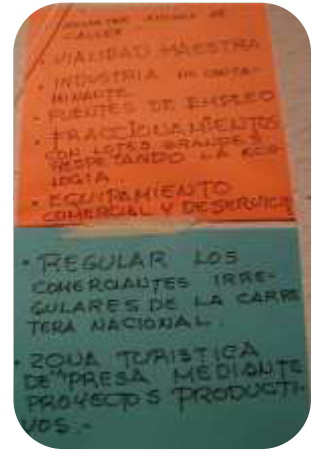 CALLES
• VIALIDAD MAESTRA
• INDUSTRIA NO CONTA-
MINANTE.
• FUENTES DE EMPLEO
• FRACCIONAMIENTOS
CON LOTES GRANDES
RESPETANDO LA ECO-
LOGIA
• EQUIPAMIENTO
COMERCIAL Y DE SERVICIO
• REGULAR LOS
COMERCIANTES IRRE-
GULARES DE LA CARRE
TERA NACIONAL.
• ZONA TURISTICA
DE PRESA MEDIANTE
PROYECTOS PRODUCTI-
VOS.-